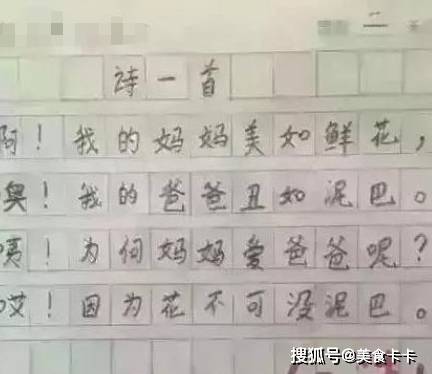 诗一首
啊！我的妈妈美如鲜花，
奥！我的爸爸丑如泥巴。
咦！为何妈妈爱爸爸呢？
哎！因为花不可没泥巴。
搜狐号@美食卡卡